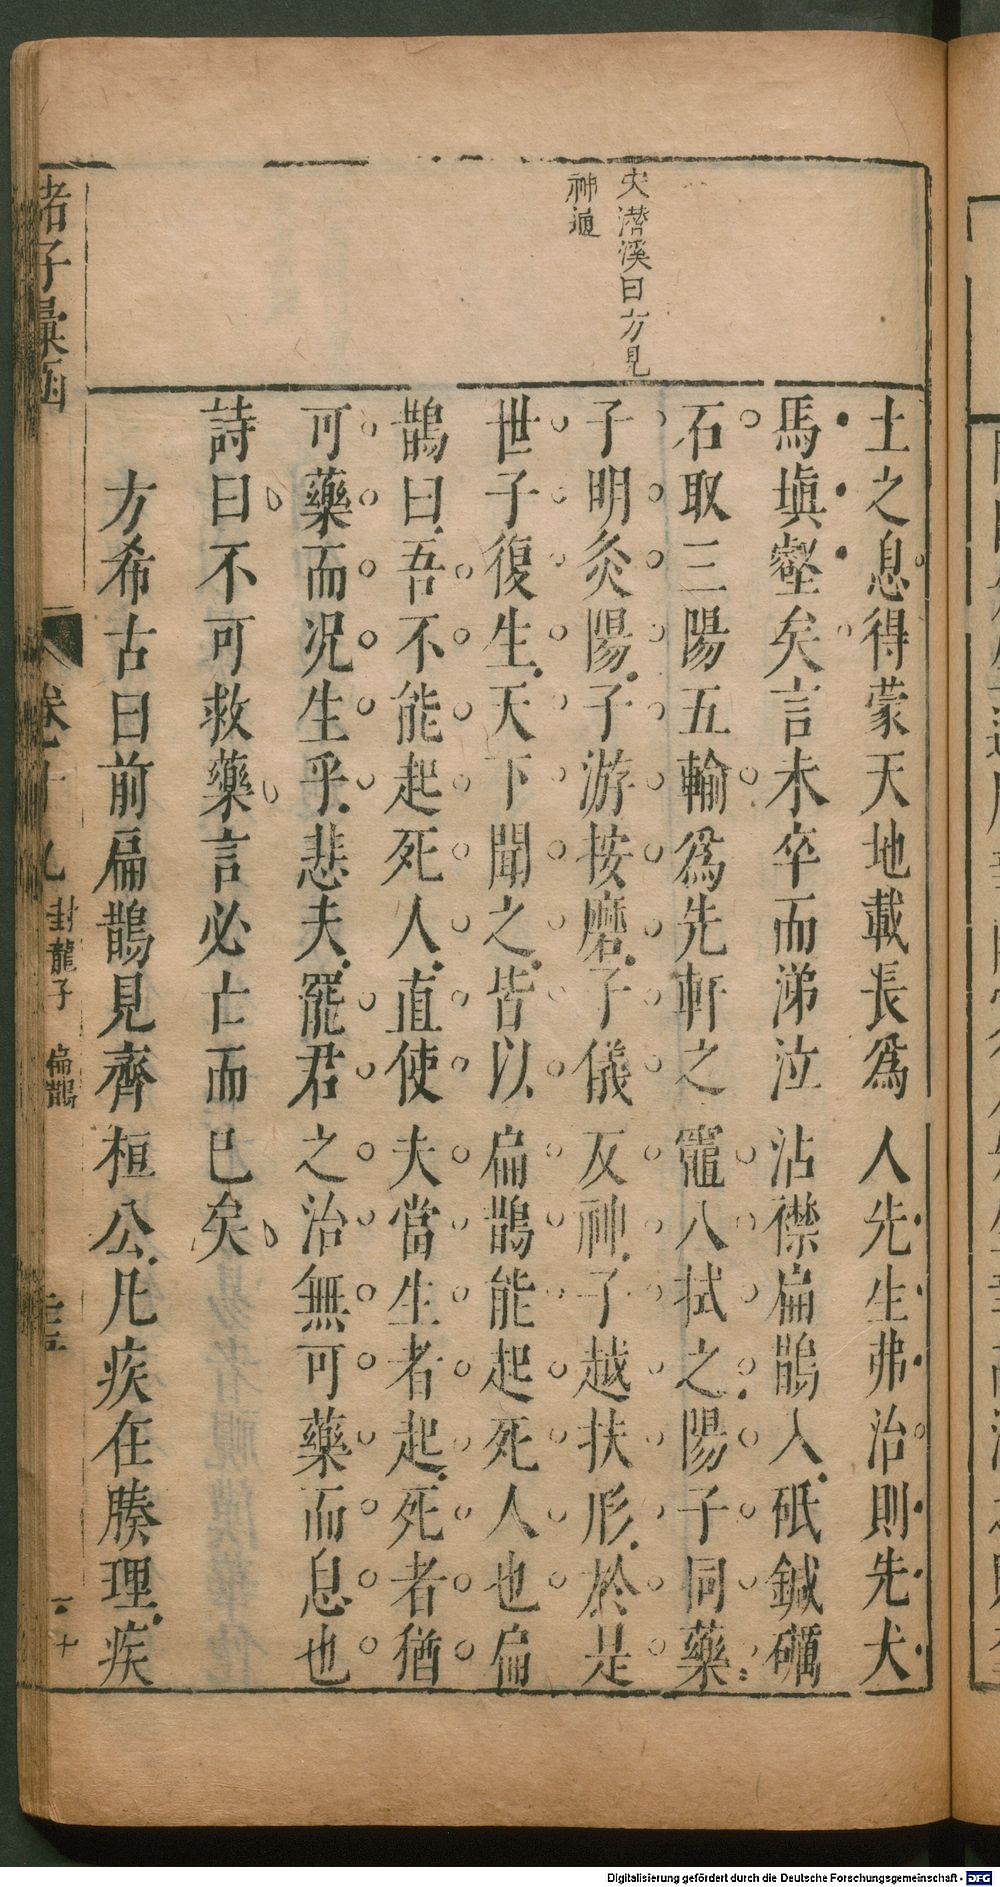 宋潛溪曰方見
神通
土之息得蒙天地載長爲人先生弗治則先犬
馬塡壑矣言未卒而涕泣沾襟扁鵲入砥鍼礪
石取三陽五輸爲先軒之竈八拭之陽子同藥
子明灸陽子游按磨子儀反神子越扶形於是
世子復生天下聞之皆以扁鵲能起死人也扁
鵲曰吾不能起死人直使夫當生者起死者猶
可藥而况生乎悲夫罷君之治無可藥而息也
詩曰不可救藥言必亡而已矣
方希古曰前扁鵲見齊桓公凡疾在腠理疾
諸子彙函
卷十九
封龍子
扁鵲
Digitalisierung gefördert durch die Deutsche Forschungsgemeinschaft - DFG